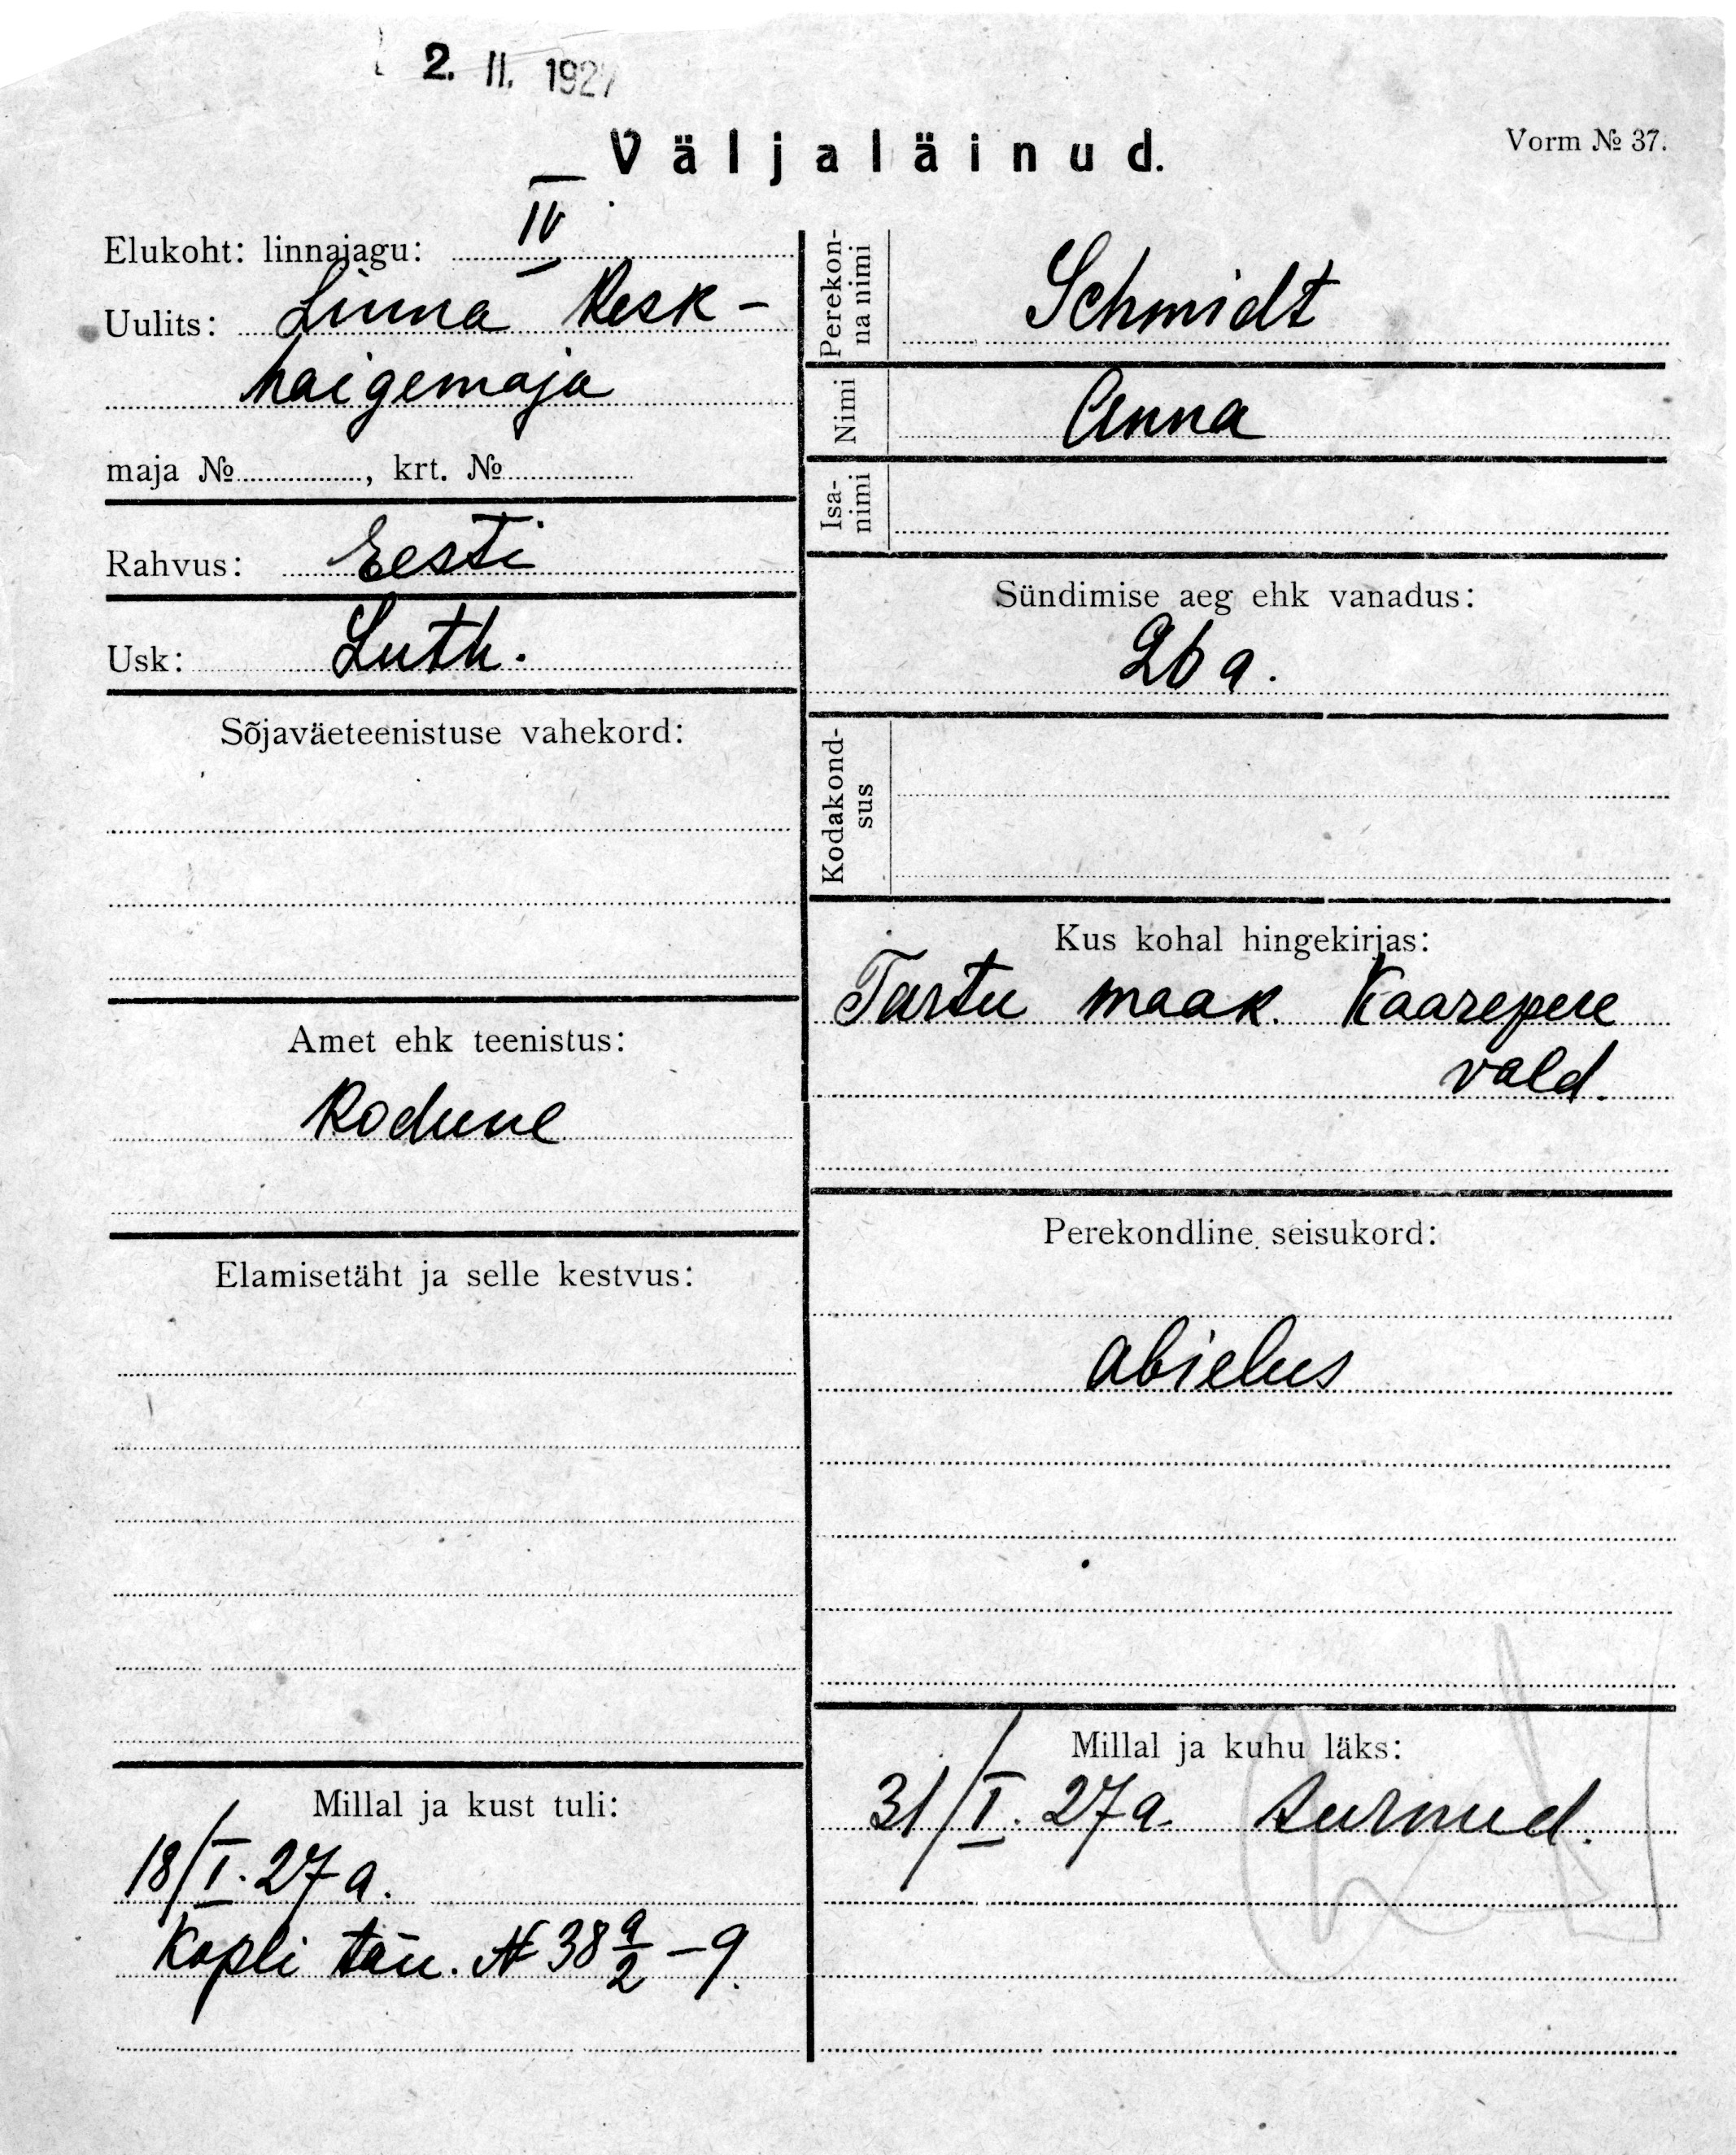 2. II. 1927
Väljaläinud.
Vorm № 37.
Elukoht: linnajagu: IV
Uulits: Linna Kesk-
haigemaja
maja № , krt. №
Rahvus: Eesti
Usk: Luth.
Sõjaväeteenistuse vahekord:
Amet ehk teenistus:
Kodune
Elamisetäht ja selle kestvus:
Millal ja kust tuli:
18/I. 27 a.
Kopli tän. № 38 a/2 - 9.
Perekon-
na nimi
Schmidt
Nimi Anna
Isa-
nimi
Sündimise aeg ehk vanadus:
26 a.
Kodakond-
sus
Kus kohal hingekirjas:
Tartu maak. Kaarepere
vald.
Perekondline seisukord:
abielus
Millal ja kuhu läks:
31/I. 27 a. surnud.